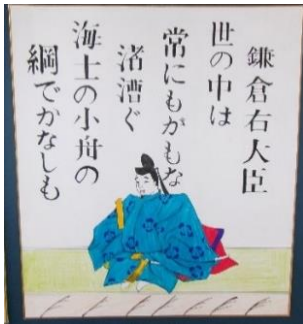 鎌倉右大臣
世の中は
常にもがもな
渚漕ぐ
海士の小舟の
綱でかなしも